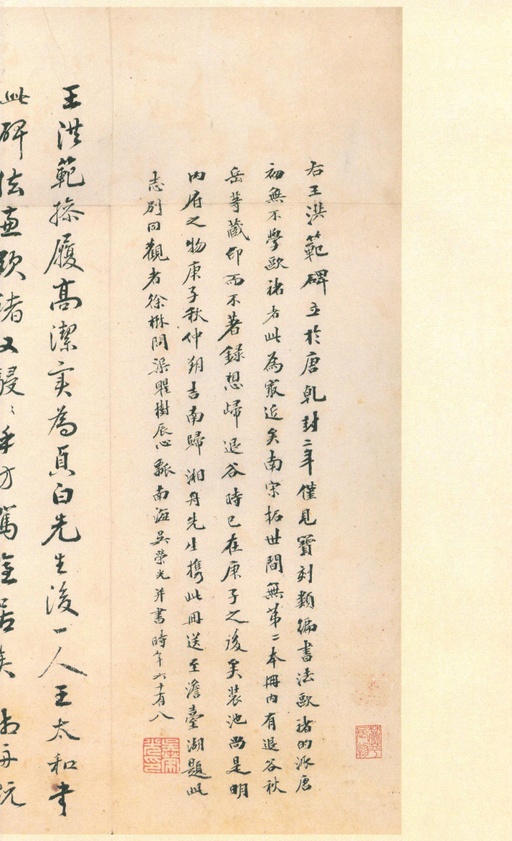 右王洪範碑立於唐乾封二年僅見寶刻類編書法歐褚的派唐
初無不學歐褚者此為最近矣南宋拓世間無第二本冊內有退谷秋
岳等藏印而不著錄想歸退谷時已在庚子之後矣裝池尚是明
內府之物庚子秋仲朔吉南歸湘舟先生携此冊送至澹臺湖題此
志別同觀者徐楙問梁瞿樹辰心瓢南海吳榮光并書時年六十有八
王洪範操履高潔実為貞白先生後一人王太和書
此碑法兼歐褚又駸〻乎方駕登善矣 湘舟沅